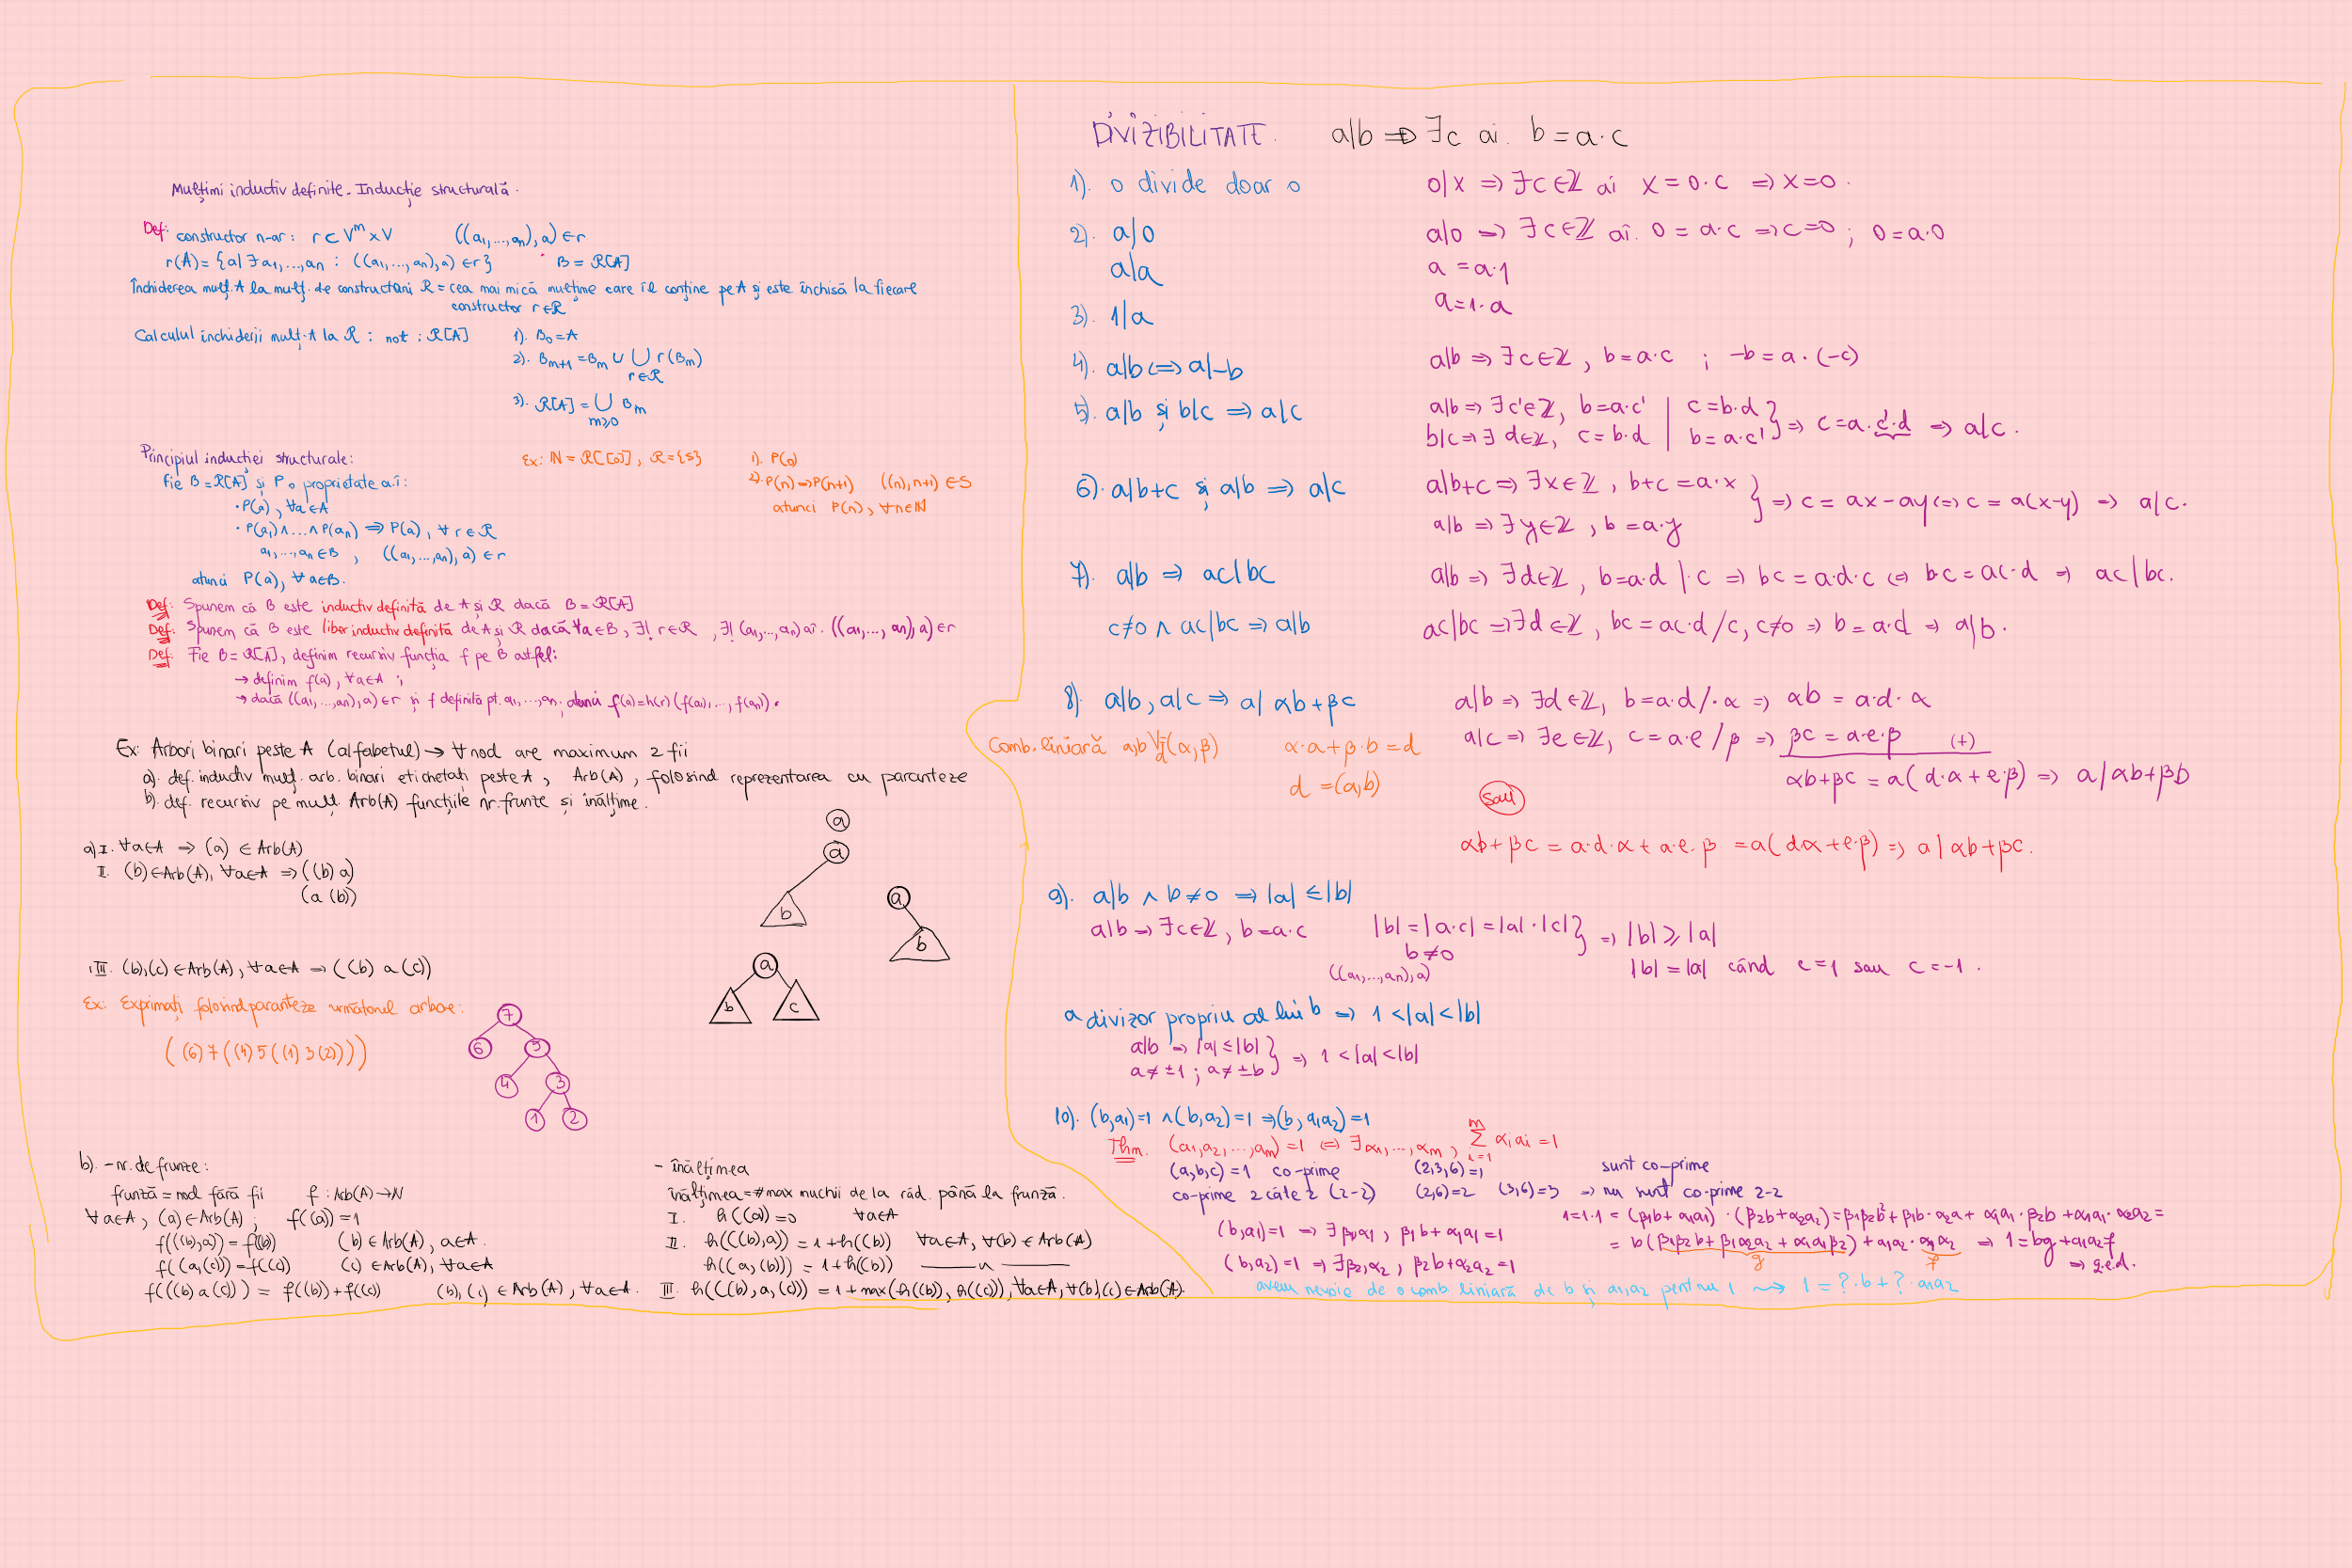 Mulțimi inductiv definite. Inducție structurală.
Def: constructor n-ar: r ⊂ Vᵐ × V ((a₁,...,aₙ), a) ∈ r
r(A) = {a | ∃ a₁,...,aₙ : ((a₁,...,aₙ), a) ∈ r} B = ℛ[A]
Închiderea mulț. A la mulț. de constructori ℛ = cea mai mică mulțime care îl conține pe A și este închisă la fiecare
constructor r ∈ ℛ
Calculul închiderii mulț. A la ℛ : not : ℛ[A] 1). B₀ = A
2). Bₘ₊₁ = Bₘ ∪ ⋃ r(Bₘ)
r∈ℛ
3). ℛ[A] = ⋃ Bₘ
m⩾0
Principiul inducției structurale:
fie B = ℛ[A] și P o proprietate a.î:
• P(a), ∀a∈A
• P(a₁) ∧ ... ∧ P(aₙ) ⇒ P(a), ∀ r ∈ ℛ
a₁,...,aₙ ∈ B , ((a₁,...,aₙ), a) ∈ r
atunci P(a), ∀ a∈B.
Ex: ℕ = ℛ[[0]], ℛ = {s} 1). P(0)
2). P(n) ⇒ P(n+1) ((n), n+1) ∈ S
atunci P(n), ∀n∈ℕ
Def: Spunem că B este inductiv definită de A și ℛ dacă B = ℛ[A]
Def: Spunem că B este liber inductiv definită de A și ℛ dacă ∀a∈B, ∃! r∈ℛ , ∃! (a₁,...,aₙ) aî. ((a₁,...,aₙ), a) ∈ r
Def: Fie B = ℛ[A], definim recursiv funcția f pe B astfel:
→ definim f(a), ∀a∈A ;
→ dacă ((a₁,...,aₙ), a) ∈ r și f definită pt. a₁,...,aₙ, atunci f(a) = h(r)(f(a₁),..., f(aₙ)).
Ex: Arbori binari peste A (alfabetul) → ∀ nod are maximum 2 fii
a). def. inductiv mulț. arb. binari etichetați peste A, Arb(A), folosind reprezentarea cu paranteze
b). def. recursiv pe mulț. Arb(A) funcțiile nr. frunze și înălțime.
a) I. ∀a∈A ⇒ (a) ∈ Arb(A)
II. (b)∈Arb(A), ∀a∈A ⇒ ((b) a)
(a (b))
III. (b),(c) ∈ Arb(A), ∀a∈A ⇒ ((b) a (c))
a
a
b
a
b
a
b c
Ex: Exprimați folosind paranteze următorul arbore:
( (6) 7 ((4) 5 ((1) 3 (2))))
7
6 5
4 3
1 2
b). - nr. de frunze:
frunză = nod fără fii f : Arb(A) → N
∀a∈A, (a) ∈ Arb(A) ; f((a)) = 1
f(((b),a)) = f((b)) (b) ∈ Arb(A), a∈A.
f((a,(c))) = f((c)) (c) ∈ Arb(A), ∀a∈A
f(((b) a (c))) = f((b)) + f((c)) (b), (c) ∈ Arb(A), ∀a∈A.
- înălțimea
înălțimea = # max muchii de la răd. până la frunză.
I. h((a)) = 0 ∀a∈A
II. h(((b),a)) = 1 + h((b)) ∀a∈A, ∀(b) ∈ Arb(A)
h((a,(b))) = 1 + h((b)) —— 〃 ——
III. h(((b), a, (c))) = 1 + max(h((b)), h((c))), ∀a∈A, ∀(b),(c) ∈ Arb(A).
DIVIZIBILITATE. a|b ⇒ ∃c aî. b = a·c
1). 0 divide doar 0 0|x ⇒ ∃c∈ℤ aî x = 0·c ⇒ x=0.
2). a|0 a|0 ⇒ ∃c∈ℤ aî. 0 = a·c ⇒ c=0 ; 0=a·0
a|a a = a·1
3). 1|a a = 1·a
4). a|b ⇔ a|-b a|b ⇒ ∃c∈ℤ, b = a·c ; -b = a·(-c)
5). a|b și b|c ⇒ a|c a|b ⇒ ∃c'∈ℤ, b=a·c' | c=b·d
b|c ⇒ ∃ d∈ℤ, c=b·d | b=a·c' } ⇒ c=a·c'·d ⇒ a|c.
6). a|b+c și a|b ⇒ a|c a|b+c ⇒ ∃x∈ℤ, b+c = a·x
a|b ⇒ ∃y∈ℤ, b=a·y } ⇒ c = ax-ay ⇔ c = a(x-y) ⇒ a|c.
7). a|b ⇒ ac|bc a|b ⇒ ∃d∈ℤ, b=a·d |·c ⇒ bc = a·d·c ⇔ bc = ac·d ⇒ ac|bc.
c≠0 ∧ ac|bc ⇒ a|b ac|bc ⇒ ∃d∈ℤ, bc = ac·d /c, c≠0 ⇒ b=a·d ⇒ a|b.
8). a|b, a|c ⇒ a| αb+βc a|b ⇒ ∃d∈ℤ, b=a·d/·α ⇒ αb = a·d·α
a|c ⇒ ∃e∈ℤ, c=a·e /β ⇒ βc = a·e·β (+)
αb+βc = a(d·α+e·β) ⇒ a|αb+βb
Comb. liniară a,b (α,β) α·a+β·b = d
d = (a,b)
sau
αb+βc = a·d·α + a·e·β = a(dα+e·β) ⇒ a|αb+βc.
9). a|b ∧ b≠0 ⇒ |a| ≤ |b|
a|b ⇒ ∃c∈ℤ, b=a·c |b| = |a·c| = |a|·|c| } ⇒ |b| ⩾ |a|
b≠0
((a₁,...,aₙ), a)
|b| = |a| când c=1 sau c=-1.
a divizor propriu al lui b ⇒ 1<|a|<|b|
a|b ⇒ |a|≤|b|
a≠±1 ; a≠±b } ⇒ 1<|a|<|b|
10). (b,a₁)=1 ∧ (b,a₂)=1 ⇒ (b, a₁a₂)=1
Thm. (a₁,a₂,...,aₘ)=1 ⇔ ∃α₁,...,αₘ, Σᵢ₌₁ᵐ αᵢaᵢ = 1
(a,b,c)=1 co-prime (2,3,6)=1 sunt co-prime
co-prime 2 câte 2 (2-2) (2,6)=2 (3,6)=3 ⇒ nu sunt co-prime 2-2
(b,a₁)=1 ⇒ ∃β₁α₁, β₁b+α₁a₁=1
(b,a₂)=1 ⇒ ∃β₂,α₂, β₂b+α₂a₂=1
1=1·1 = (β₁b+α₁a₁)·(β₂b+α₂a₂) = β₁β₂b²+β₁b·α₂a+α₁a₁·β₂b+α₁a₁·α₂a₂ =
= b(β₁β₂b+β₁α₂a₂+α₁a₁β₂)+a₁a₂·α₁α₂ ⇒ 1=bg+a₁a₂f
g f ⇒ q.e.d.
avem nevoie de o comb. liniară de b și a₁,a₂ pentru 1 ⇝ 1 = ?·b + ?·a₁a₂